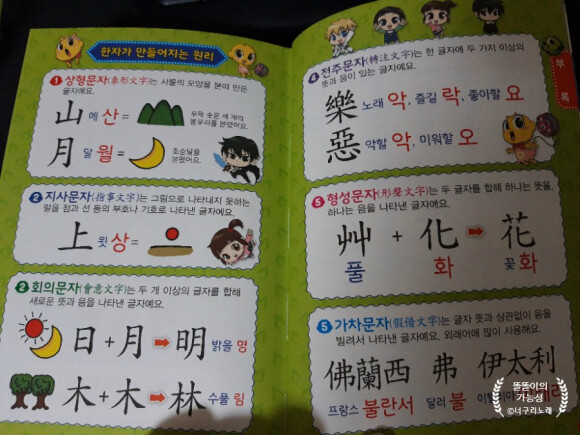 한자가 만들어지는 원리
1 상형문자(象形文字)는 사물의 모양을 본떠 만든
글자예요.
山 메 산 =
우뚝 솟은 세 개의
봉우리를 본떴어요.
月 달 월 =
초승달을
본떴어요.
2 지사문자(指事文字)는 그림으로 나타내지 못하는
말을 점과 선 등의 부호나 기호로 나타낸 글자예요.
上 윗 상 =
2 회의문자(會意文字)는 두 개 이상의 글자를 합해
새로운 뜻과 음을 나타낸 글자예요.
日 + 月 明 밝을 명
木 + 木 林 수풀 림
부록
4 전주문자(轉注文字)는 한 글자에 두 가지 이상의
뜻과 음이 있는 글자예요.
樂 노래 악, 즐길 락, 좋아할 요
惡 악할 악, 미워할 오
5 형성문자(形聲文字)는 두 글자를 합해 하나는 뜻을,
하나는 음을 나타낸 글자예요.
艸 + 化 花
풀 화 꽃 화
5 가차문자(假借文字)는 글자 뜻과 상관없이 음을
빌려서 나타낸 글자예요. 외래어에 많이 사용해요.
佛蘭西 弗 伊太利
프랑스 불란서 달러 불
똘똘이의
가능성
©너구리노래